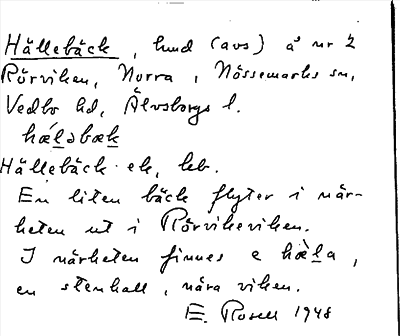 Hällebäck, lund (avs) å nr 2
Rörviken, Norra, Nössemarks sn,
Vedbo hd, Älvsborgs l.
hæ̀lə bæk
Hällebäck ek, leb.
En liten bäck flyter i när-
heten ut i Rörvikeviken.
I närheten finnes e hæ̀la,
en stenhall, nära viken.
E. Rosell 1948